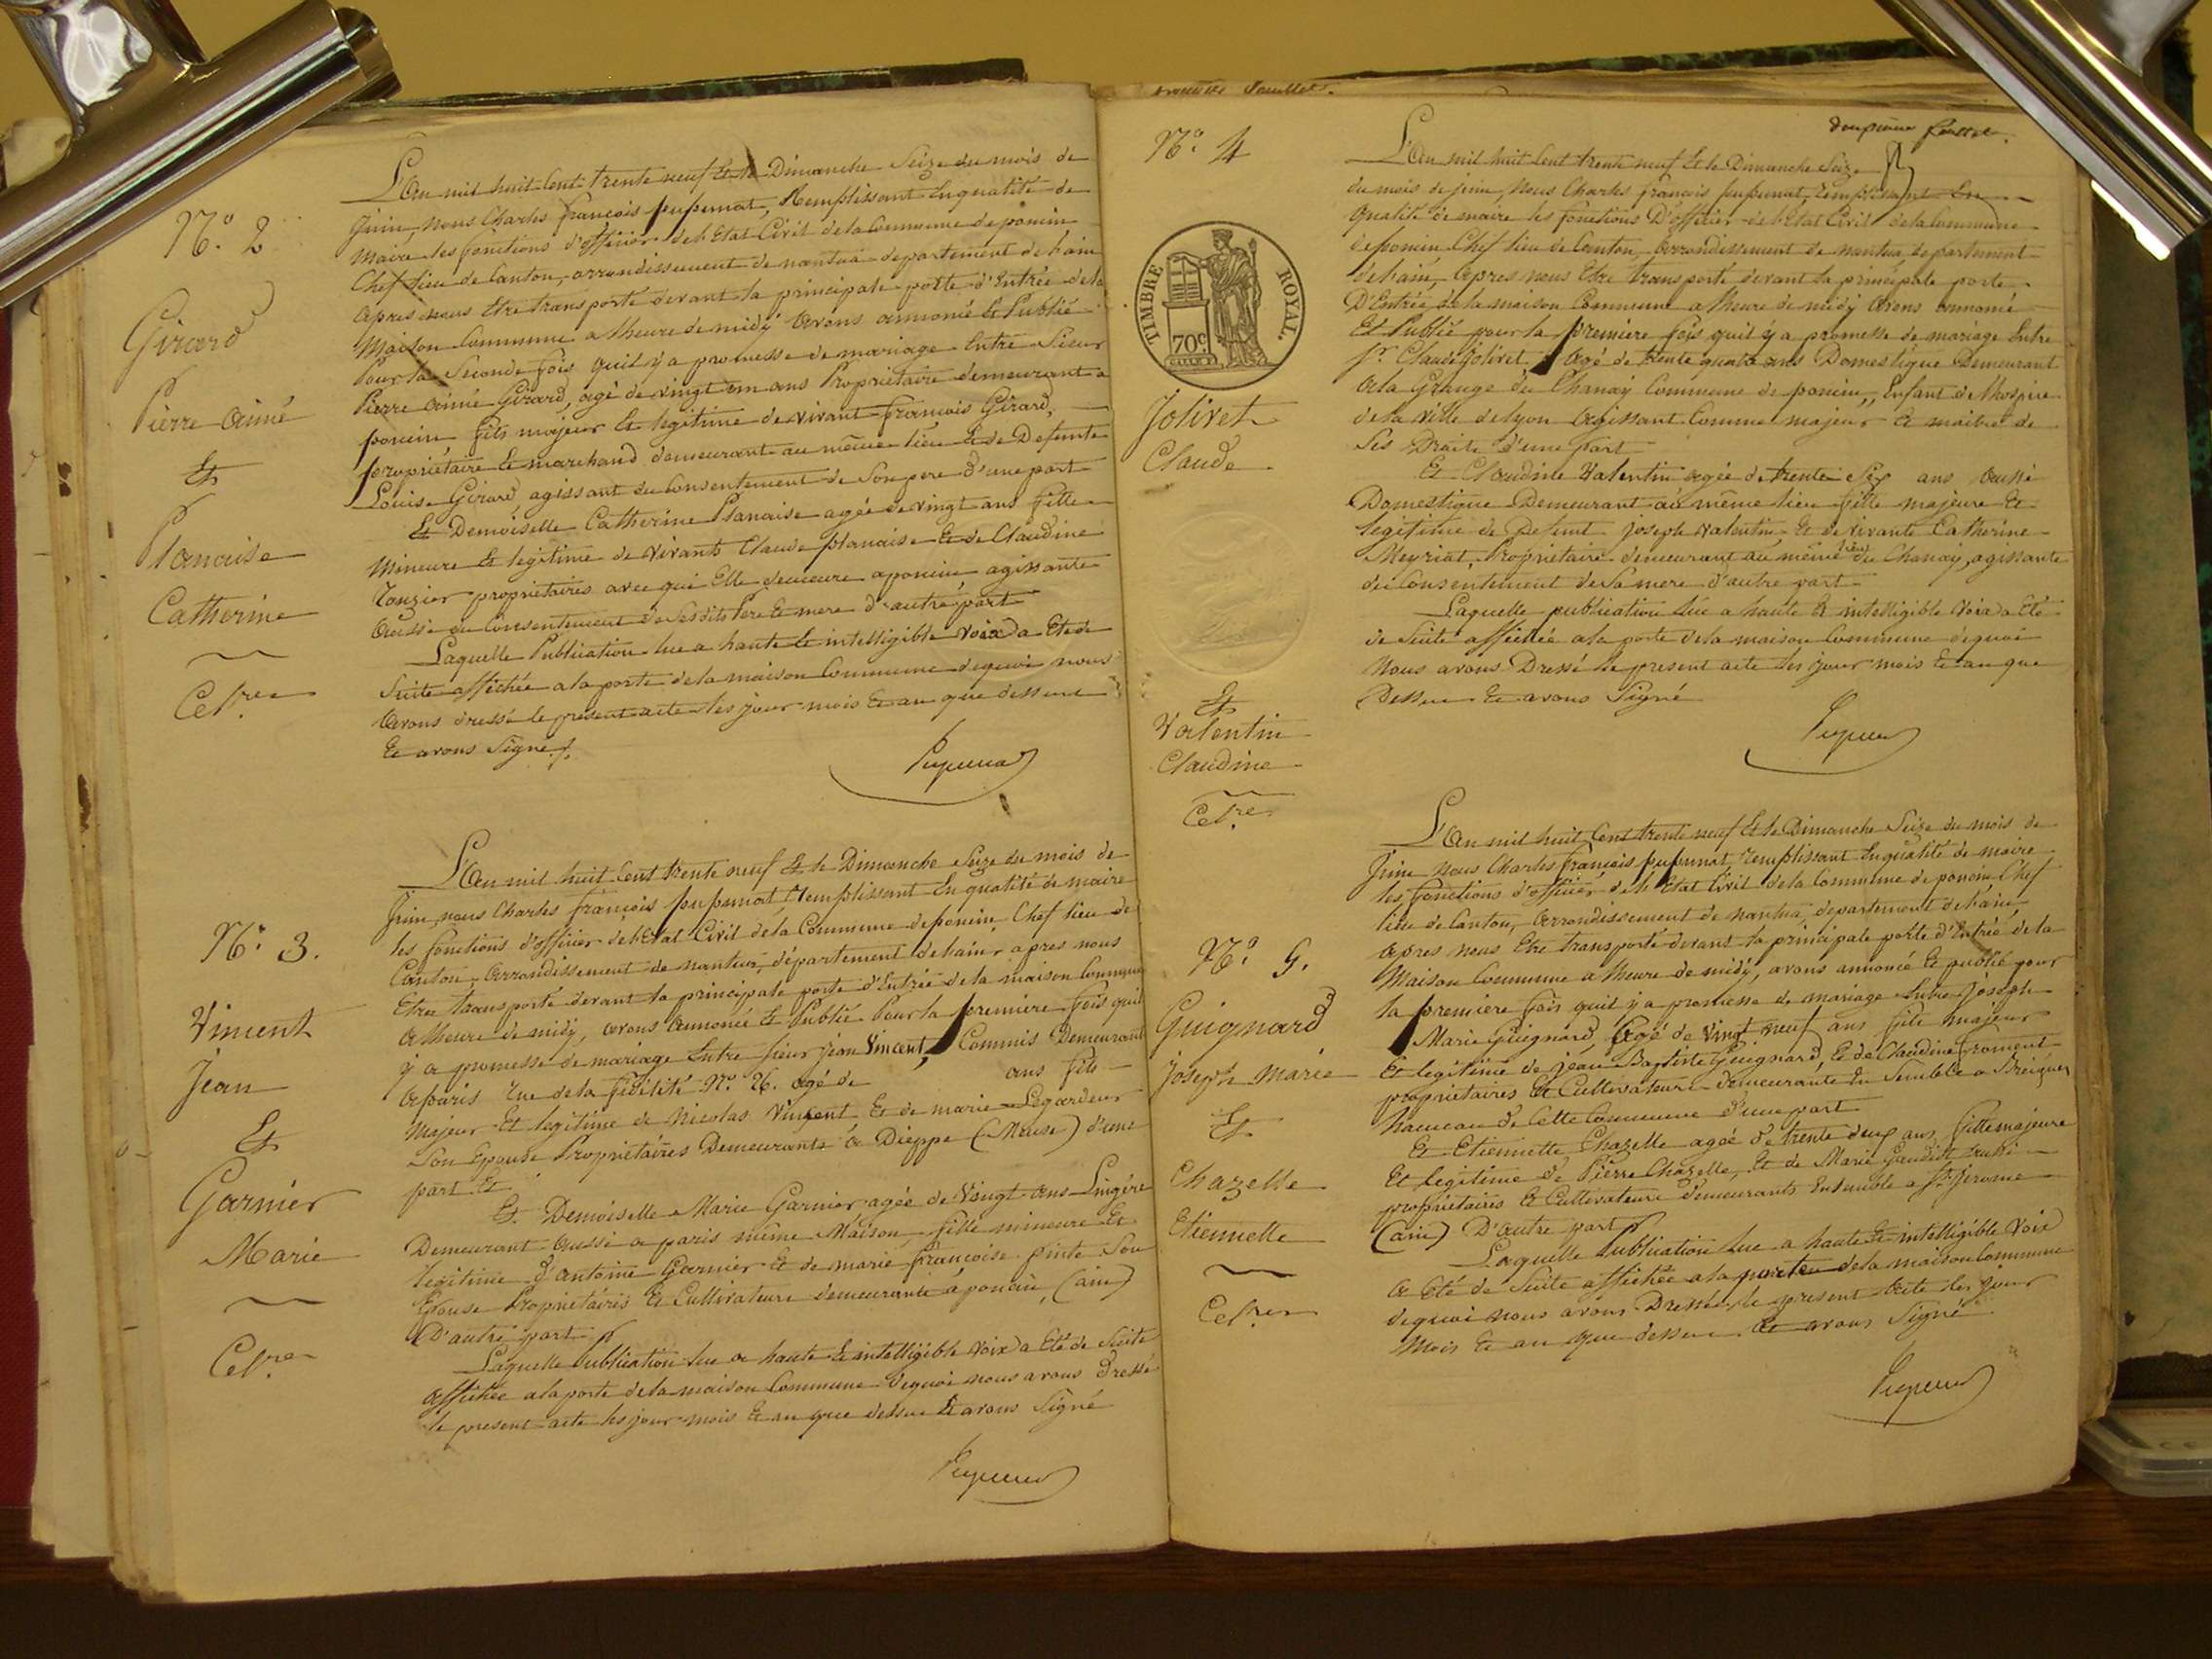 N.° 2
Girard
Pierre aimé
Et
Planaise
Catherine
Cel.re
L'an mil huit Cent trente neuf Et le Dimanche Seize du mois de
Juin, nous Charles françois pupunat, Remplissant En qualité de
Maire les fonctions d'officier de l'Etat Civil de la Commune de poncin
Chef lieu de Canton, arrondissement de nantua departement de l'ain
apres nous Etre transporté devant la principale porte d'Entrée de la
Maison Commune a l'heure de midy avons annoncé Et Publié
Pour la Seconde fois quil y a promesse de mariage Entre Sieur
Pierre aimé Girard, agé de vingt un ans Propriétaire demeurant a
poncin fils majeur Et legitime de vivant françois Girard,
propriétaire Et marchand demeurant au même lieu Et de Defunte
Louise Girard, agissant du Consentement de Son pere d'une part
Et Demoiselle Catherine Planaise agée de vingt ans fille
Mineure Et legitime de vivants Claude planaise Et de Claudine
propriétaires avec qui Elle demeure a poncin agissante
aussi du Consentement de Sesdits Pere Et mere d'autre part
Laquelle Publication lue a haute Et intelligible voix a Eté de
Suite affichée a la porte de la maison Commune dequoi nous
avons dressé le présent acte les jour mois Et an que dessus
Et avons Signé
N.° 3.
Vincent
Jean
Et
Garnier
Marie
Cel.re
L'an mil huit Cent trente neuf Et le Dimanche Seize du mois de
Juin, nous Charles françois pupunat Remplissant En qualité de maire
les fonctions d'officier de l'Etat Civil de la Commune de poncin, Chef lieu de
Canton, arrondissement de nantua, département de l'ain, apres nous
Etre transporté devant la principale porte d'Entrée de la maison Commune
a l'heure de midy, avons annoncé Et Publié Pour la première fois quil
y a promesse de mariage Entre sieur Jean Vincent, Commis Demeurant
a paris rue de la fidélité N.° 26. agé de ans fils
Majeur Et legitime de Nicolas Vincent Et de marie Legardeur
Son Epouse Propriétaires Demeurants a Dieppe (Meuse) d'une
part Et
Et Demoiselle Marie Garnier agée de Vingt ans Lingère
Demeurant aussi a paris même Maison, fille mineure Et
legitime d'antoine Garnier Et de marie françoise pinte Son
Epouse Propriétaires Et Cultivateurs demeurants à poncin, (ain)
D'autre part
Laquelle Publication lue a haute Et intelligible voix a Eté de Suite
affichée a la porte de la maison Commune dequoi nous avons Dressé
le present acte les jour mois Et an que dessus Et avons Signé
N.° 4
TIMBRE ROYAL.
70c
Jolivet
Claude
Et
Valentin
Claudine
Cel.re
L'an mil huit Cent trente neuf Et le Dimanche Seize
du mois de juin, Nous Charles françois pupunat, remplissant En
qualité de maire les fonctions D'officier de l'Etat Civil de la Commune
de poncin Chef lieu de Canton, arrondissement de nantua, departement
de l'ain, apres nous Etre transporté devant la principale porte
D'Entrée de la maison Commune a l'heure de midy avons annoncé
Et Publié pour la premiere fois quil y a promesse de mariage Entre
Sr. Claude Jolivet agé de trente quatre ans Domestique Demeurant
a la Grange du Chanay Commune de poncin, Enfant de l'hospice
de la ville de lyon agissant Comme majeur Et maitre de
Ses Droits d'une part
Et Claudine Valentin agée de trente Six ans aussi
Domestique Demeurant au même lieu fille majeure Et
legitime de Defunt Joseph Valentin Et de vivante Catherine
Meyriat, Propriétaire demeurant au même lieu du Chanay, agissante
du Consentement de Sa mere d'autre part
Laquelle publication lue a haute Et intelligible voix a Eté
de Suite affichée a la porte de la maison Commune dequoi
Nous avons Dressé le present acte les jour mois Et an que
Dessus Et avons Signé
N.° 5.
Guignard
Joseph Marie
Et
Chazelle
Etiennette
Cel.re
L'an mil huit Cent trente neuf Et le Dimanche Seize du mois de
Juin nous Charles françois pupunat, remplissant En qualité de maire
les fonctions d'officier de l'Etat Civil de la Commune de poncin Chef
lieu de Canton, arrondissement de nantua, departement de l'ain
apres nous Etre transporté devant la principale porte d'Entrée de la
Maison Commune a l'heure de midy, avons annoncé Et publié pour
la premiere fois quil y a promesse de mariage Entre Joseph
Marie Guignard, agé de vingt neuf ans fils majeur
Et legitime de jean Baptiste Guignard, Et de Claudine froment
propriétaires Et Cultivateurs demeurants Ensemble a
hameau de Cette Commune d'une part
Et Etiennette Chazelle agée de trente deux ans fille majeure
Et legitime de Pierre Chazelle, Et de Marie aussi
propriétaires Et Cultivateurs demeurants Ensemble a St. jerome
(ain) D'autre part
Laquelle Publication lue a haute Et intelligible voix
a Eté de Suite affichée a la porte de la maison Commune
dequoi nous avons Dressé le present acte les jour
Mois Et an que dessus Et avons Signé